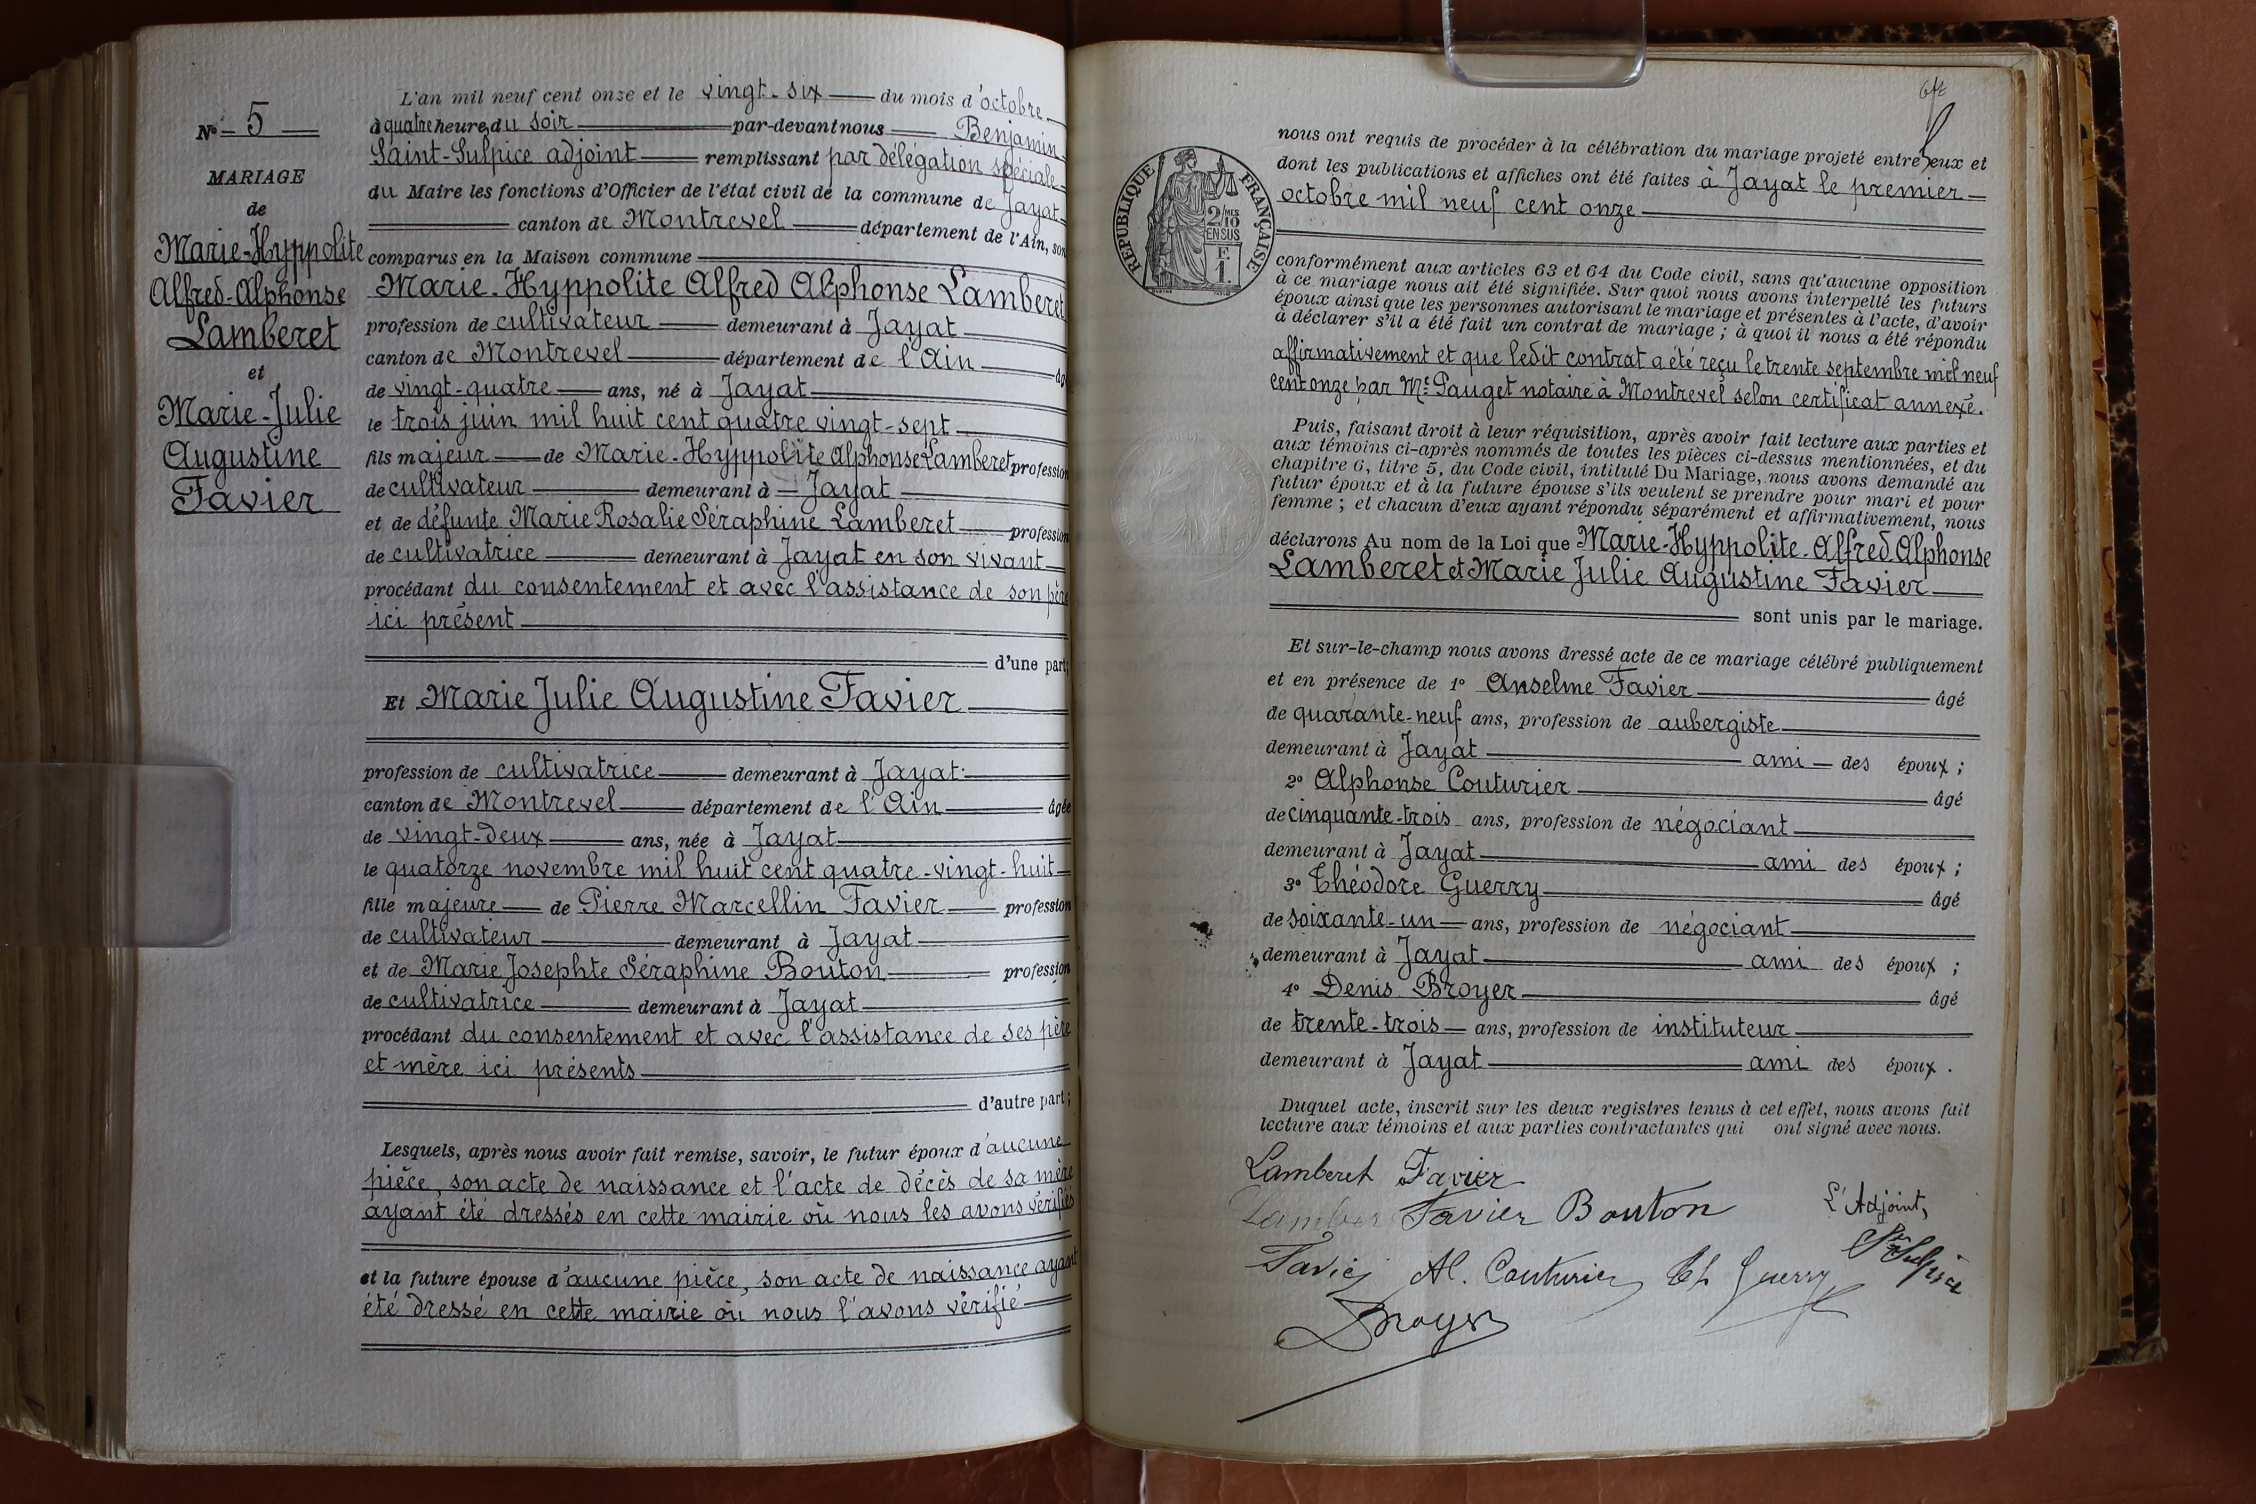 N° 5
MARIAGE
de
Marie-Hyppolite
Alfred-Alphonse
Lamberet
et
Marie-Julie
Augustine
Favier
L'an mil neuf cent onze et le vingt-six du mois d'octobre
à quatre heures du soir par-devant nous Benjamin
Saint-Sulpice adjoint remplissant par délégation spéciale
du Maire les fonctions d'Officier de l'état civil de la commune de Jayat
canton de Montrevel département de l'Ain, son
comparus en la Maison commune
Marie-Hyppolite Alfred Alphonse Lamberet
profession de cultivateur demeurant à Jayat
canton de Montrevel département de l'Ain âg
de vingt-quatre ans, né à Jayat
le trois juin mil huit cent quatre vingt-sept
fils majeur de Marie-Hyppolite Alphonse Lamberet profession
de cultivateur demeurant à Jayat
et de défunte Marie Rosalie Séraphine Lamberet profession
de cultivatrice demeurant à Jayat en son vivant
procédant du consentement et avec l'assistance de son père
ici présent
d'une part;
Et Marie Julie Augustine Favier
profession de cultivatrice demeurant à Jayat
canton de Montrevel département de l'Ain âgée
de vingt-deux ans, née à Jayat
le quatorze novembre mil huit cent quatre-vingt-huit
fille majeure de Pierre Marcellin Favier profession
de cultivateur demeurant à Jayat
et de Marie Josephte Séraphine Bouton profession
de cultivatrice demeurant à Jayat
procédant du consentement et avec l'assistance de ses père
et mère ici présents
d'autre part;
Lesquels, après nous avoir fait remise, savoir, le futur époux d'aucune
pièce, son acte de naissance et l'acte de décès de sa mère
ayant été dressés en cette mairie où nous les avons vérifiés
et la future épouse d'aucune pièce, son acte de naissance ayant
été dressé en cette mairie où nous l'avons vérifié
RÉPUBLIQUE FRANÇAISE
2/MES
10
EN SUS
F.
1.
nous ont requis de procéder à la célébration du mariage projeté entre eux et
dont les publications et affiches ont été faites à Jayat le premier
octobre mil neuf cent onze
conformément aux articles 63 et 64 du Code civil, sans qu'aucune opposition
à ce mariage nous ait été signifiée. Sur quoi nous avons interpellé les futurs
époux ainsi que les personnes autorisant le mariage et présentes à l'acte, d'avoir
à déclarer s'il a été fait un contrat de mariage ; à quoi il nous a été répondu
affirmativement et que ledit contrat a été reçu le trente septembre mil neuf
cent onze par Me Pauget notaire à Montrevel selon certificat annexé.
Puis, faisant droit à leur réquisition, après avoir fait lecture aux parties et
aux témoins ci-après nommés de toutes les pièces ci-dessus mentionnées, et du
chapitre 6, titre 5, du Code civil, intitulé Du Mariage, nous avons demandé au
futur époux et à la future épouse s'ils veulent se prendre pour mari et pour
femme ; et chacun d'eux ayant répondu séparément et affirmativement, nous
déclarons Au nom de la Loi que Marie-Hyppolite-Alfred Alphonse
Lamberet et Marie Julie Augustine Favier
sont unis par le mariage.
Et sur-le-champ nous avons dressé acte de ce mariage célébré publiquement
et en présence de 1° Anselme Favier âgé
de quarante-neuf ans, profession de aubergiste
demeurant à Jayat ami des époux ;
2° Alphonse Couturier âgé
de cinquante-trois ans, profession de négociant
demeurant à Jayat ami des époux ;
3° Théodore Guerry âgé
de soixante-un ans, profession de négociant
demeurant à Jayat ami des époux ;
4° Denis Broyer âgé
de trente-trois ans, profession de instituteur
demeurant à Jayat ami des époux.
Duquel acte, inscrit sur les deux registres tenus à cet effet, nous avons fait
lecture aux témoins et aux parties contractantes qui ont signé avec nous.
Lamberet Favier
Favier Bouton
L'Adjoint,
St Sulpice
Favier Al. Couturier Th Guerry
Broyer